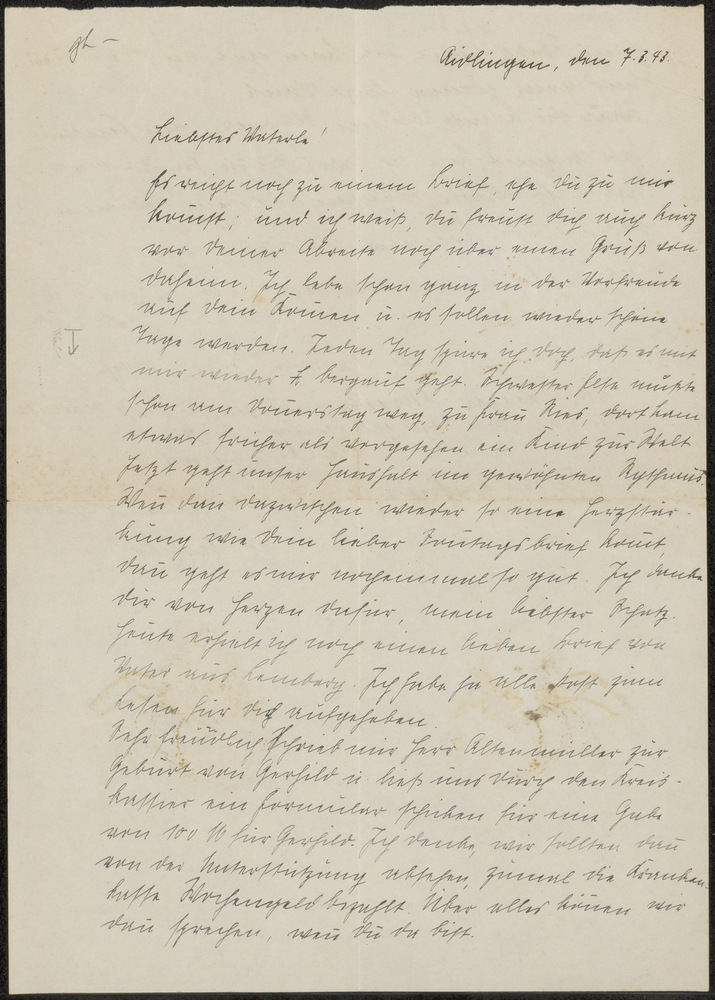 gh –
Aidlingen, den 7.3.43.
Liebstes Vaterle!
Es reicht noch zu einem Brief, ehe du zu mir
kom̅st; und ich weiß, du freust dich auch kurz
vor deiner Abreise noch über einen Gruß von
daheim. Ich lebe schon ganz in der Vorfreude
auf dein Kom̅en u. es sollen wieder schöne
Tage werden. Jeden Tag spüre ich doch, daß es mit
mir wieder bergauf geht. Schwester Else mußte
schon am Don̅erstag weg, zu Frau Ries, dort kam
etwas früher als vorgesehen ein Kind zur Welt
Jetzt geht unser Haushalt im gewöhnten Rythmus.
Wen̅ dan̅ dazwischen wieder so eine Herzstär-
kung wie dein lieber Son̅tagsbrief kom̅t,
dan̅ geht es mir nocheinmal so gut. Ich danke
dir von Herzen dafür, mein liebster Schatz.
Heute erhielt ich noch einen lieben Brief von
Vater aus Lemberg. Ich habe ja alle Post zum
Lesen für dich aufgehoben.
Sehr freundlich schrieb mir Herr Altenmüller zur
Geburt von Gerhild u. ließ uns durch den Kreis-
kassier ein Formular schicken für eine Gabe
von 100 M für Gerhild. Ich denke, wir sollten dan̅
von der Unterstützung absehen, zumal die Kranken-
kasse Wochengeld bezahlt. Über alles kön̅en wir
dan̅ sprechen, wen̅ du da bist.